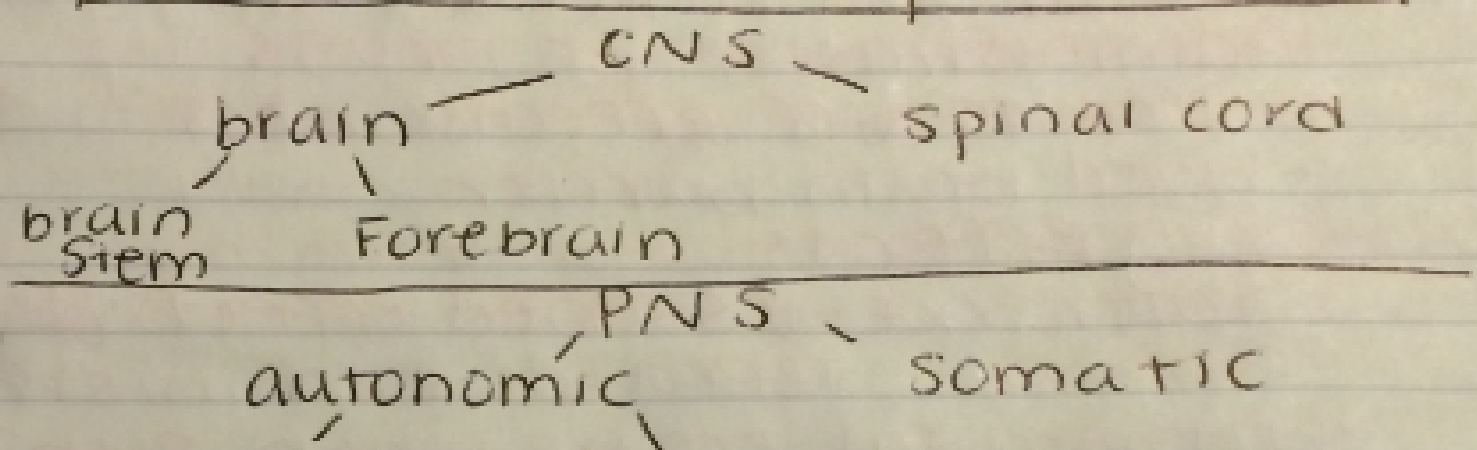 CNS
brain spinal cord
brain Forebrain
stem
PNS
autonomic somatic